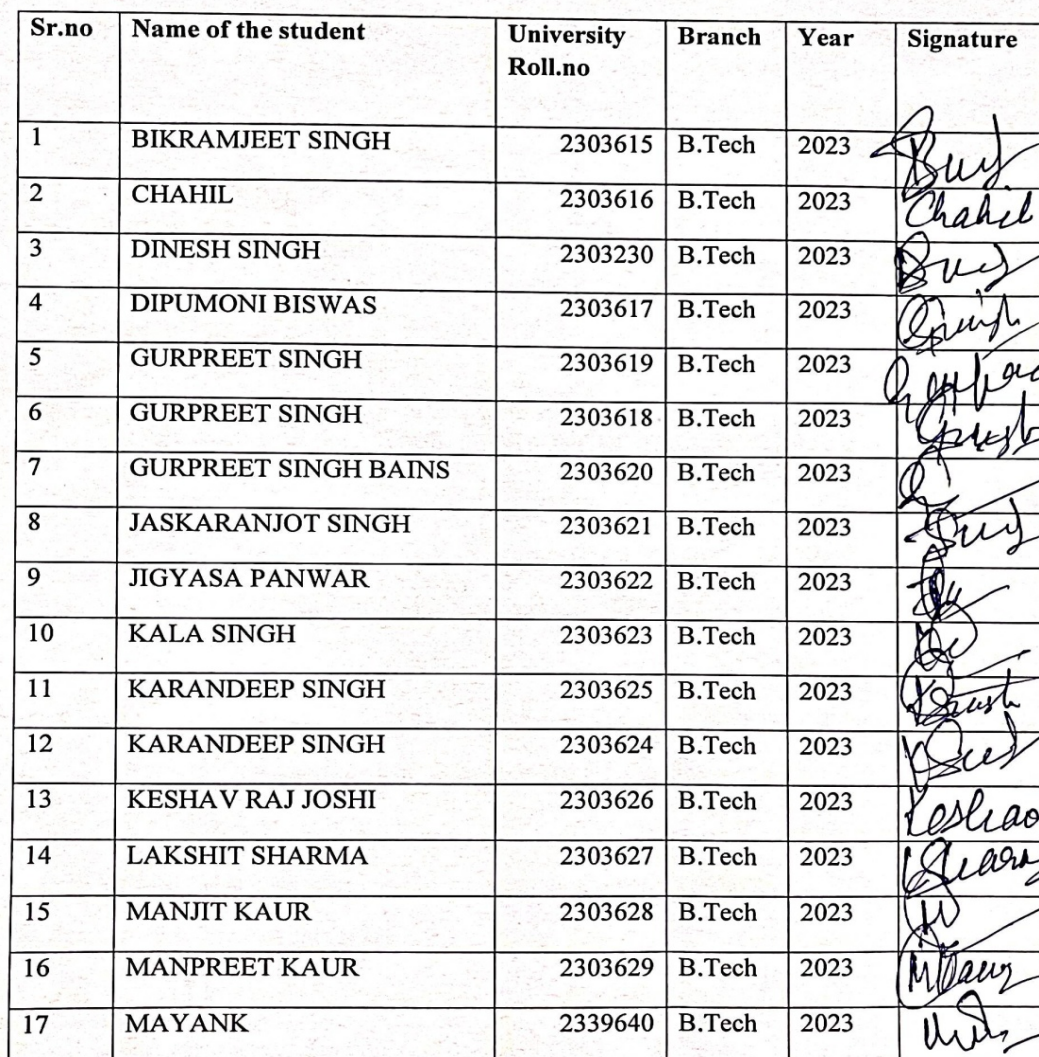 Sr.no Name of the student University Roll.no Branch Year Signature
1 BIKRAMJEET SINGH 2303615 B.Tech 2023
2 CHAHIL 2303616 B.Tech 2023 Chahil
3 DINESH SINGH 2303230 B.Tech 2023
4 DIPUMONI BISWAS 2303617 B.Tech 2023
5 GURPREET SINGH 2303619 B.Tech 2023
6 GURPREET SINGH 2303618 B.Tech 2023
7 GURPREET SINGH BAINS 2303620 B.Tech 2023
8 JASKARANJOT SINGH 2303621 B.Tech 2023
9 JIGYASA PANWAR 2303622 B.Tech 2023
10 KALA SINGH 2303623 B.Tech 2023
11 KARANDEEP SINGH 2303625 B.Tech 2023
12 KARANDEEP SINGH 2303624 B.Tech 2023
13 KESHAV RAJ JOSHI 2303626 B.Tech 2023
14 LAKSHIT SHARMA 2303627 B.Tech 2023
15 MANJIT KAUR 2303628 B.Tech 2023
16 MANPREET KAUR 2303629 B.Tech 2023
17 MAYANK 2339640 B.Tech 2023